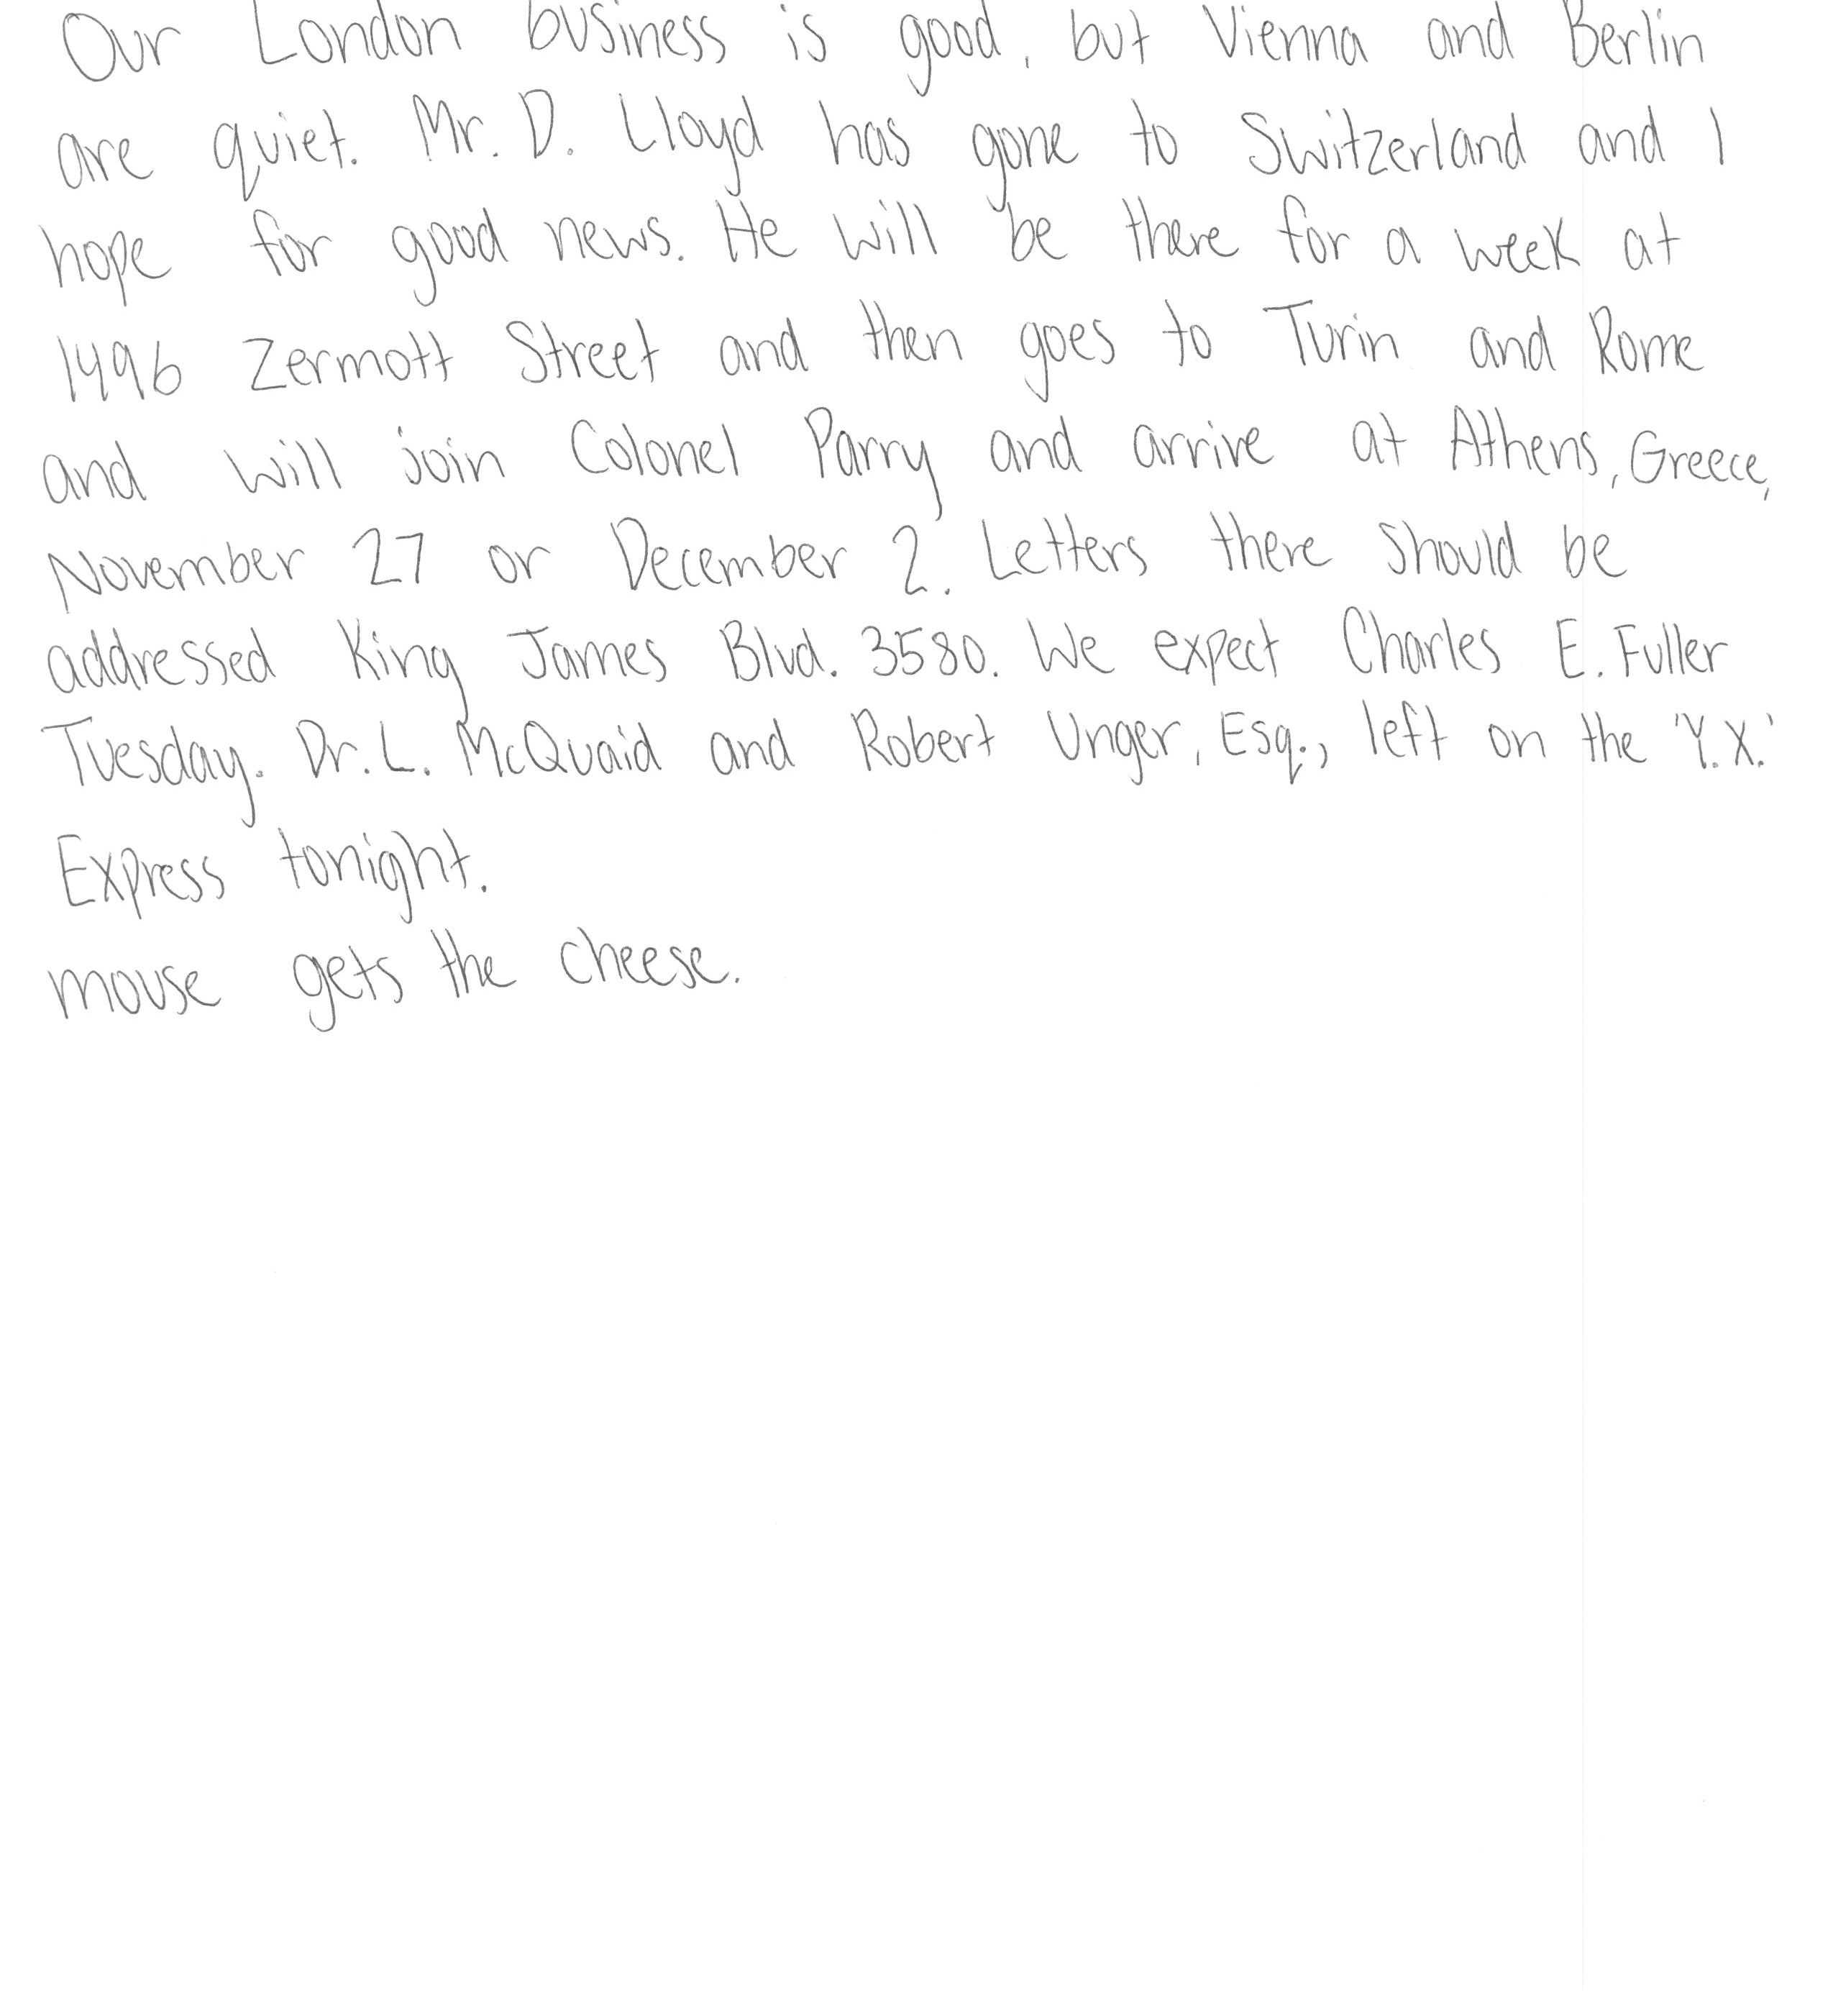 Our London business is good, but Vienna and Berlin
are quiet. Mr. D. Lloyd has gone to Switzerland and I
hope for good news. He will be there for a week at
1496 Zermott Street and then goes to Turin and Rome
and will join Colonel Parry and arrive at Athens, Greece,
November 27 or December 2. Letters there should be
addressed King James Blvd. 3580. We expect Charles E. Fuller
Tuesday. Dr. L. McQuaid and Robert Unger, Esq., left on the 'Y.X.'
Express tonight.
mouse gets the cheese.